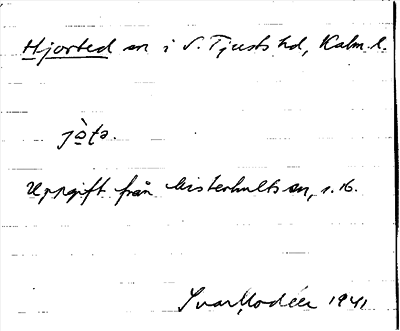 Hjorted sn i S. Tjusts hd, Kalm. l.
jo̱̊̀ta.
Uppgift från Misterhults sn, s. 16.
Ivar Modéer 1941